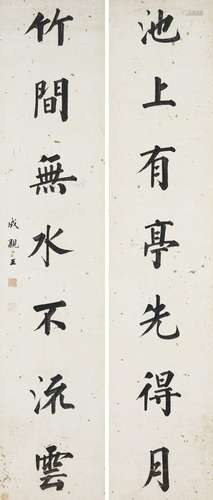 池上有亭先得月
竹間無水不流雲
成親王